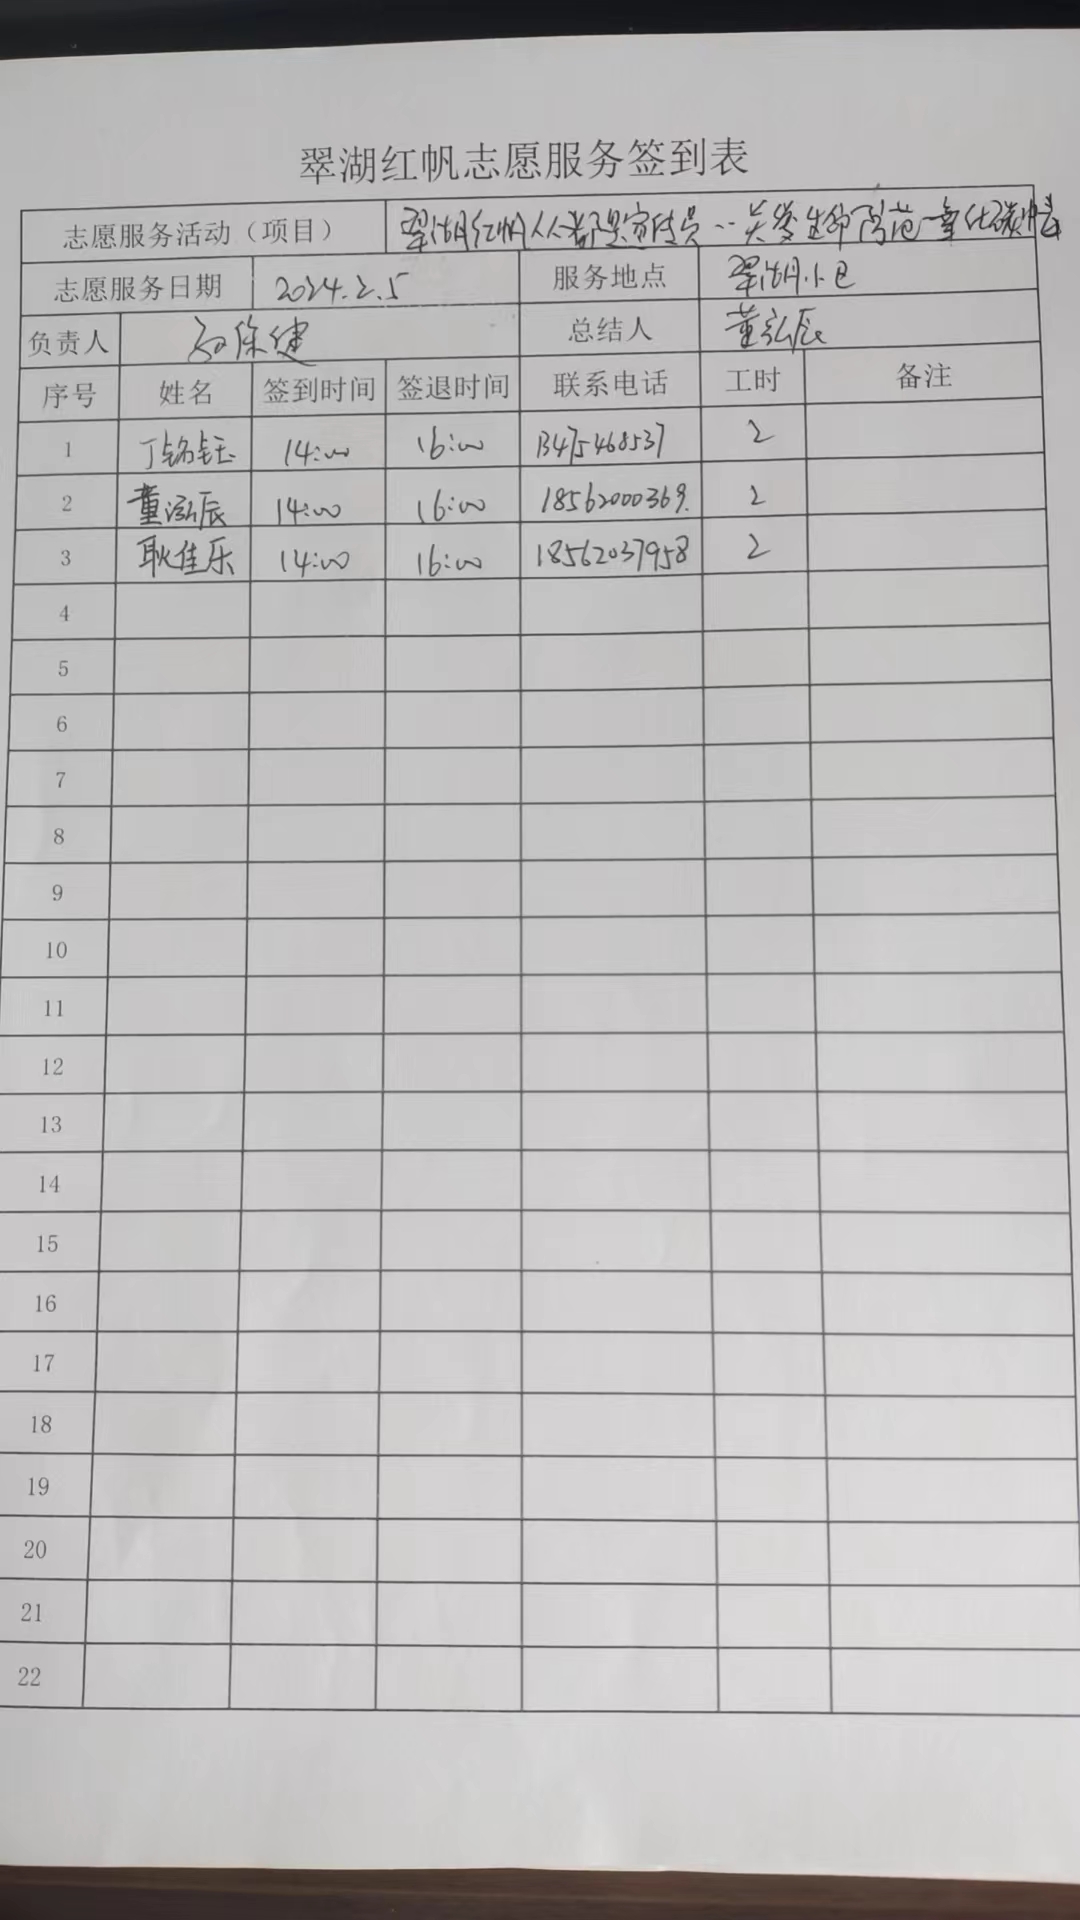 翠湖红帆志愿服务签到表
志愿服务活动（项目） 翠湖红帆人人都是宣传员··关爱生命 防范一氧化碳中毒
志愿服务日期 2024.2.5 服务地点 翠湖小区
负责人 总结人 董泓辰
序号 姓名 签到时间 签退时间 联系电话 工时 备注
1 丁铭钰 14:00 16:00 13475468537 2
2 董泓辰 14:00 16:00 18562000369. 2
3 耿佳乐 14:00 16:00 18562037958 2
4
5
6
7
8
9
10
11
12
13
14
15
16
17
18
19
20
21
22